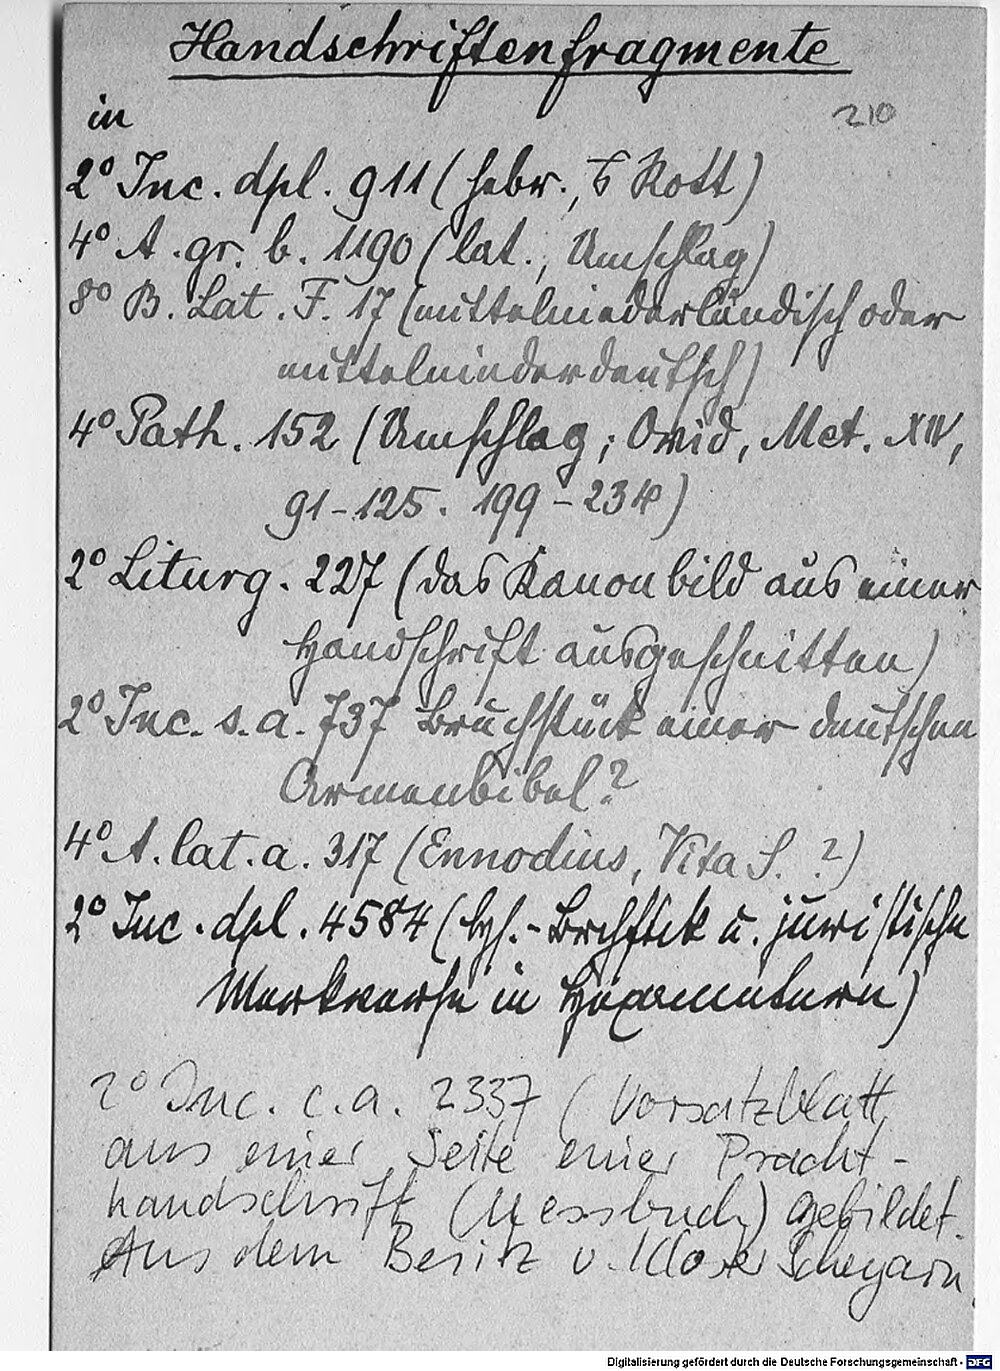 Handschriftenfragmente
in
210
2° Inc. dpl. 911 (hebr., Rott)
4° A. gr. b. 1190 (lat., Umschlag)
8° B. Lat. F. 17 (mittelniederländisch oder
mittelniederdeutsch)
4° Path. 152 (Umschlag; Ovid, Met. XIV,
91-125. 199-234)
2° Liturg. 227 (das Kanonbild aus einer
Handschrift ausgeschnitten)
2° Inc. s. a. 737 Bruchstück einer deutschen
Armenbibel?
4° A. lat. a. 317 (Ennodius, Vita S. ?)
2° Inc. dpl. 4584 (u. juristische
Merkverse in Hexametern)
2° Inc. c. a. 2337 (Vorsatzblatt
aus einer Seite einer Pracht-
handschrift (Messbuch) gebildet.
Aus dem Besitz v. Kloster Scheyarn.
Digitalisierung gefördert durch die Deutsche Forschungsgemeinschaft - DFG